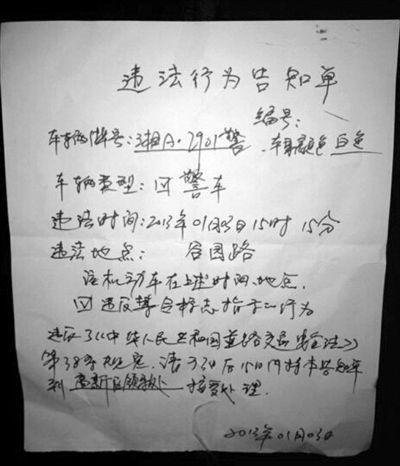 违法行为告知单
编号:
车辆牌号:湘A·2901警 车身颜色 白色
车辆类型:☑警车
违法时间:2013年01月03日15时15分
违法地点: 谷园路
该机动车在上述时间、地点,
☑违反禁令标志指示行为
违反了《中华人民共和国道路交通安全法》
第38条规定.请于3日后15日内持本告知单
到高新区领 处 接受处理.
2013年01月03日